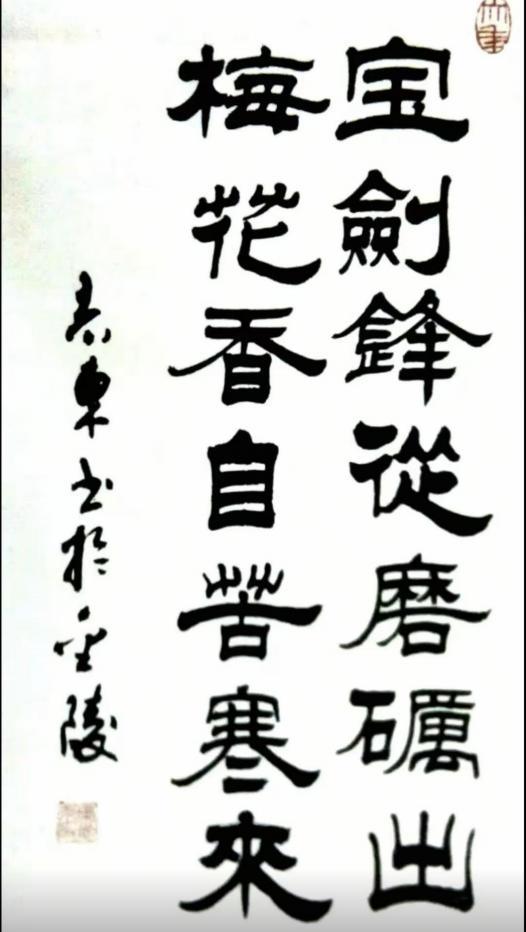 宝劍鋒從磨礪出
梅花香自苦寒來
東书於金陵